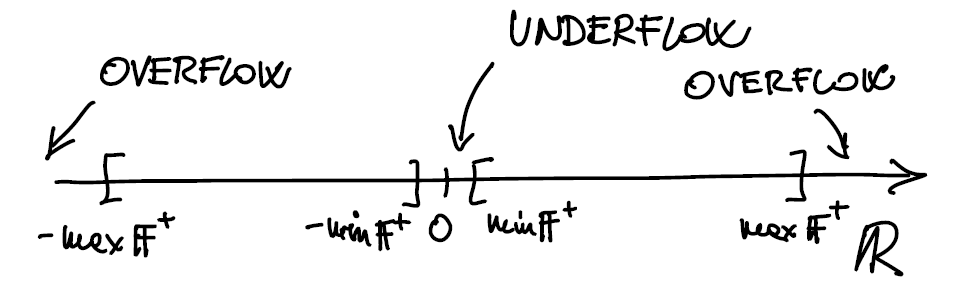 UNDERFLOW
OVERFLOW
OVERFLOW
-max 𝔽⁺ -min 𝔽⁺ 0 min 𝔽⁺ max 𝔽⁺ ℝ